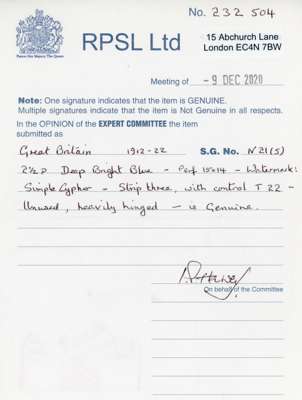 No. 232 504
RPSL Ltd
15 Abchurch Lane
London EC4N 7BW
Patron Her Majesty The Queen
Meeting of - 9 DEC 2020
Note: One signature indicates that the item is GENUINE.
Multiple signatures indicate that the item is Not Genuine in all respects.
In the OPINION of the EXPERT COMMITTEE the item
submitted as
Great Britain 1912-22 S.G. No. N21(5)
2½d Deep Bright Blue - Perf 15x14 - Watermark:
Simple Cypher - Strip three, with control T 22 -
Unused, heavily hinged - is Genuine.
On behalf of the Committee